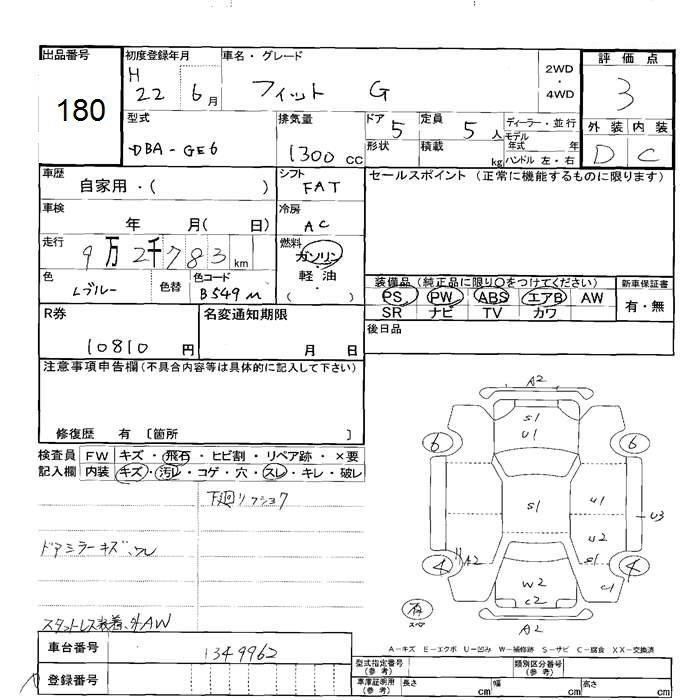 出品番号
180
初度登録年月
H 22 6月
車名・グレード
フィット G
2WD
・
4WD
評価点
3
外装 内装
D C
型式
DBA-GE6
排気量
1300 cc
ドア 5
形状
定員 5 人
積載 kg
ディーラー・並行
モデル年式 年
ハンドル 左・右
車歴
自家用・( )
シフト
FAT
セールスポイント (正常に機能するものに限ります)
車検
年 月( 日)
冷房
AC
走行
9万2千783km
燃料
ガソリン
・
軽油
・
( )
色
Lブルー
色替
色コード
B549M
装備品 (純正品に限り○をつけてください)
PS PW ABS エアB AW
SR ナビ TV カワ
新車保証書
有・無
R券
10810 円
名変通知期限
月 日
後日品
注意事項申告欄(不具合内容等は具体的に記入して下さい)
修復歴 有 〔箇所 〕
検査員
記入欄
FW キズ・飛石・ヒビ割・リペア跡・×要
内装 キズ・汚レ・コゲ・穴・スレ・キレ・破レ
下廻リ
ドアミラーキズ、ワレ
スタットレス装着、外AW
A2
S1
U1
6
6
S1
U1
U2
U3
A2
S1
4
4
W2
C2
C1
有
スペア
A2
A-キズ E-エクボ U-凹み W-補修跡 S-サビ C-腐食 XX-交換済
車台番号
1349962
登録番号
型式指定番号
(参考)
類別区分番号
(参考)
車庫証明用
(参考)
長さ cm
幅 cm
高さ cm